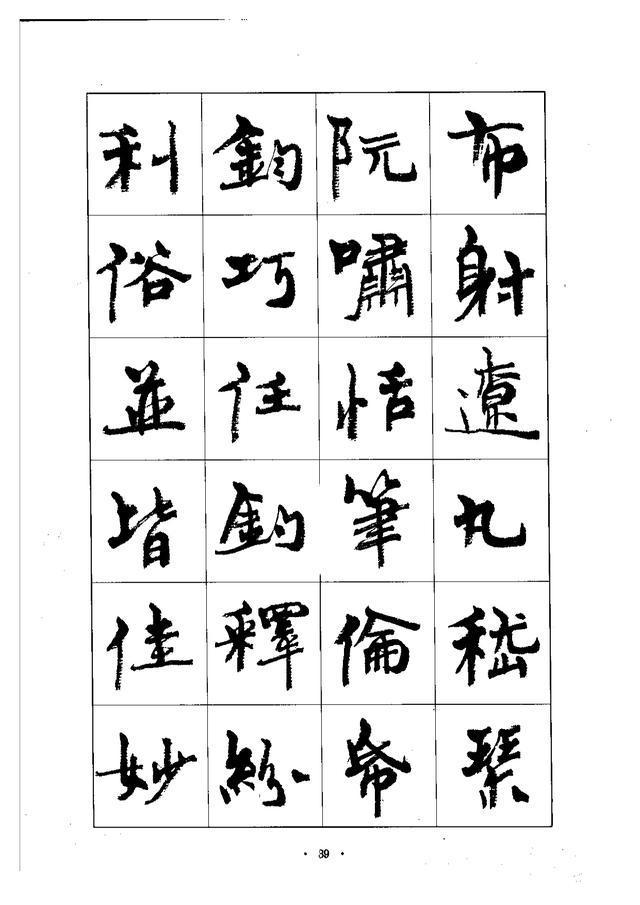 布射遼丸嵇琴
阮嘯恬筆倫帋
鈞巧任釣釋紛
利俗並皆佳妙
· 89 ·